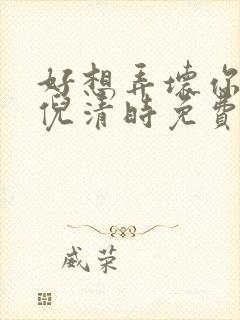 好想弄坏你
倪清时免费
威荣